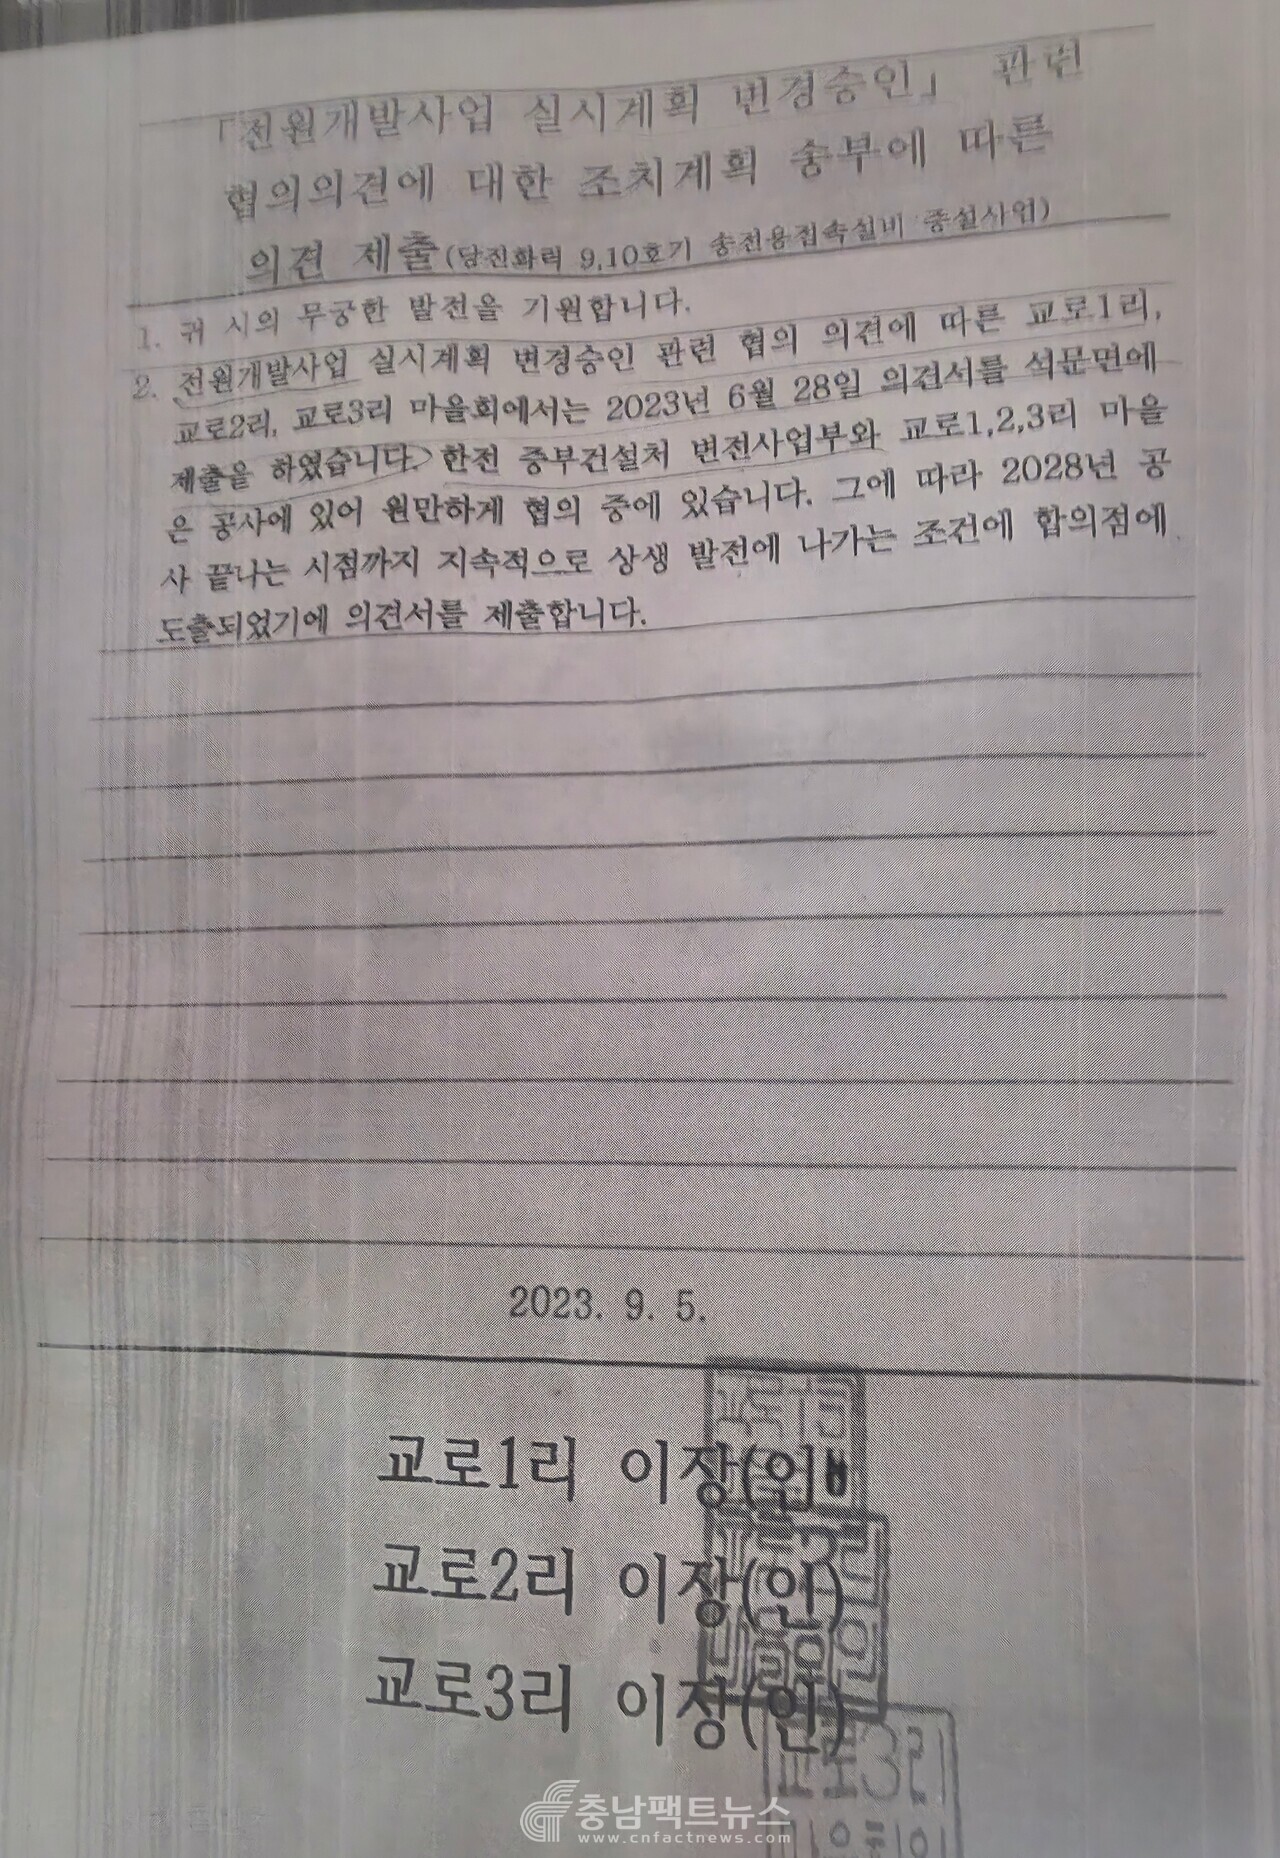 「전원개발사업 실시계획 변경승인」 관련
협의의견에 대한 조치계획 송부에 따른
의견 제출(당진화력 9,10호기 송전용접속설비 증설사업)
1. 귀 시의 무궁한 발전을 기원합니다.
2. 전원개발사업 실시계획 변경승인 관련 협의 의견에 따른 교로1리,
교로2리, 교로3리 마을회에서는 2023년 6월 28일 의견서를 석문면에
제출을 하였습니다. 한전 중부건설처 변전사업부와 교로1,2,3리 마을
은 공사에 있어 원만하게 협의 중에 있습니다. 그에 따라 2028년 공
사 끝나는 시점까지 지속적으로 상생 발전에 나가는 조건에 합의점에
도출되었기에 의견서를 제출합니다.
2023. 9. 5.
교로1리 이장(인)
교로2리 이장(인)
교로3리 이장(인)
교로3리
충남팩트뉴스
www.cnfactnews.com